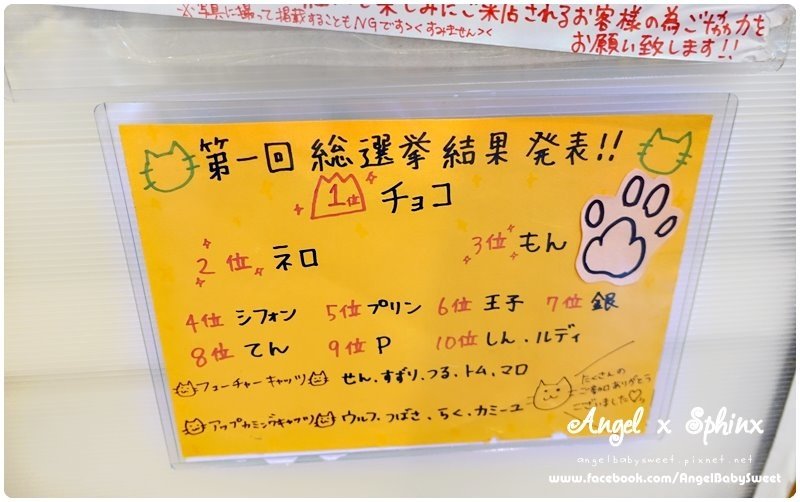 楽しみにご来店されるお客様の為ご協力を
※写真に撮って掲載することもNGです><すみません><
お願い致します!!
第一回 総選挙結果 発表!!
1位 チョコ
2位 ネロ 3位 もん
4位 シフォン 5位 プリン 6位 王子 7位 銀
8位 てん 9位 P 10位 しん・ルディ
フューチャーキャッツ せん、すずり、つる、トム、マロ
アップカミングキャッツ ウルフ、つばさ、らく、カミーユ
たくさんの
ご参加ありがとう
ございました♡
Angel x Sphinx
angelbabysweet.pixnet.net
www.facebook.com/AngelBabySweet